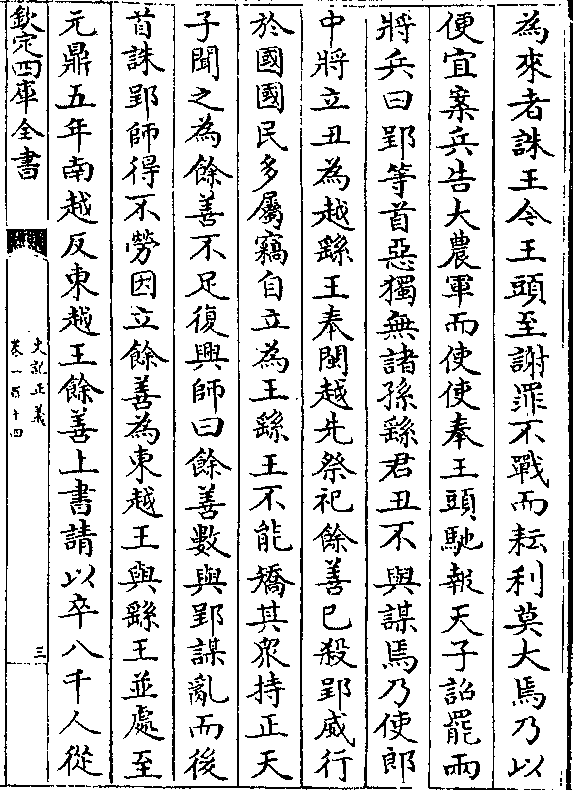 為來者誅王令王頭至謝罪不戰而耘利莫大焉乃以
便宜案兵告大農軍而使使奉王頭馳報天子詔罷兩
將兵曰郢等首惡獨無諸孫繇君丑不與謀焉乃使郎
中將立丑為越繇王奉閩越先祭祀餘善已殺郢威行
於國國民多屬竊自立為王繇王不能矯其衆持正天
子聞之為餘善不足復興師曰餘善數與郢謀亂而後
首誅郢師得不勞因立餘善為東越王與繇王並處至
元鼎五年南越反東越王餘善上書請以卒八千人從
欽定四庫全書
史記正義
卷一百十四
三